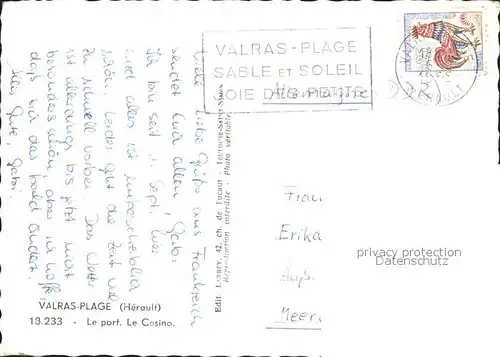 VALRAS-PLAGE
SABLE ET SOLEIL
JOIE DES PETITS
Allemagne
HÉRAULT
Viele liebe Grüße aus Frankreich
sendet Euch allen, Gabi.
Ich bin seit 1. Sept. hier
und alles ist unbeschreiblich
schön. Leider geht die Zeit viel
zu schnell vorbei. Das Wetter
ist allerdings bis jetzt nicht
besonders schön, aber ich hoffe,
daß sich das bald ändert.
Alles Gute, Gabi.
Edit. LARREY, 42, ch. de Fucaut - TOULOUSE-SAINT-SIMON
Reproduction interdite - Photo véritable
Frau
Erika
Meer
privacy protection
Datenschutz
VALRAS-PLAGE (Hérault)
13.233 - Le port. Le Casino.